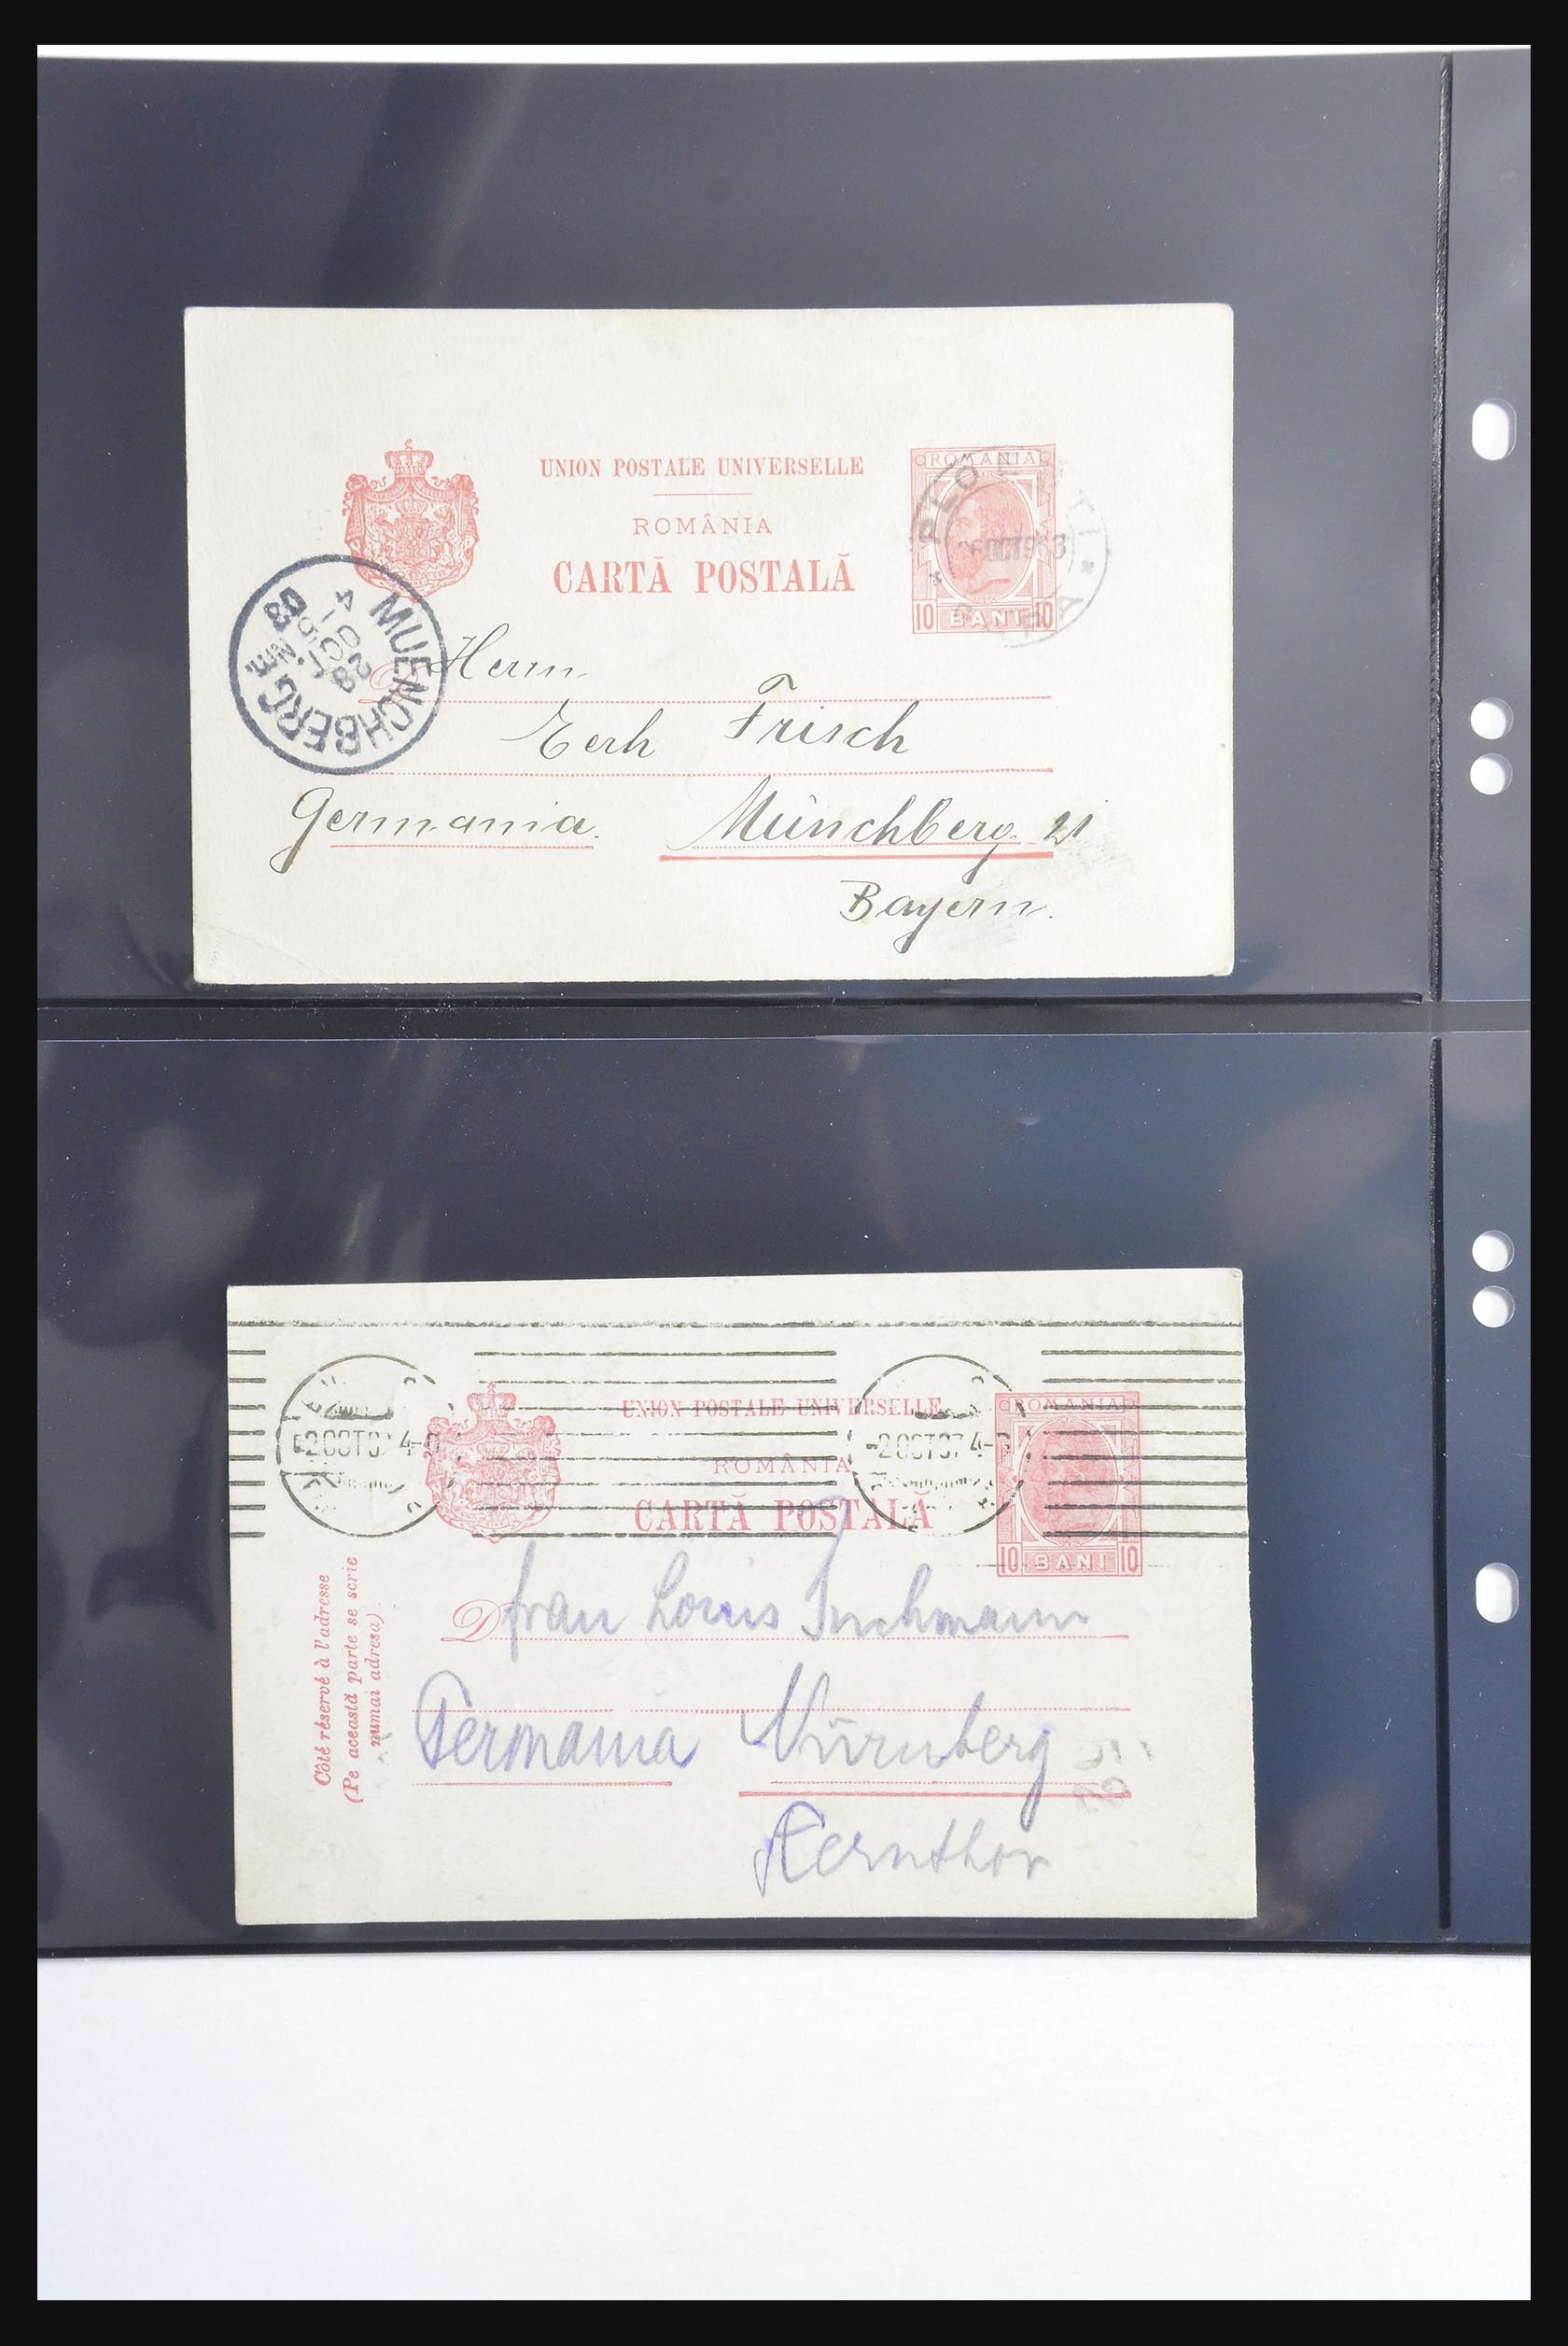 UNION POSTALE UNIVERSELLE
ROMÂNIA
CARTĂ POSTALĂ
ROMANIA
10 BANI 10
PLOESTI
OCT 903
GARA
MUENCHBERG
28 OCT. 03
4-5 Nm.
D Herrn
Eerh Frisch
Germania. Münchberg 21
Bayern.
UNION POSTALE UNIVERSELLE
ROMÂNIA
CARTĂ POSTALĂ
ROMANIA
10 BANI 10
-2OCT07 4-
-2OCT07 4-
Côté réservé à l'adresse
(Pe această parte se scrie
numai adresa).
D frau Louis
Germania Nürnberg
Kernthor